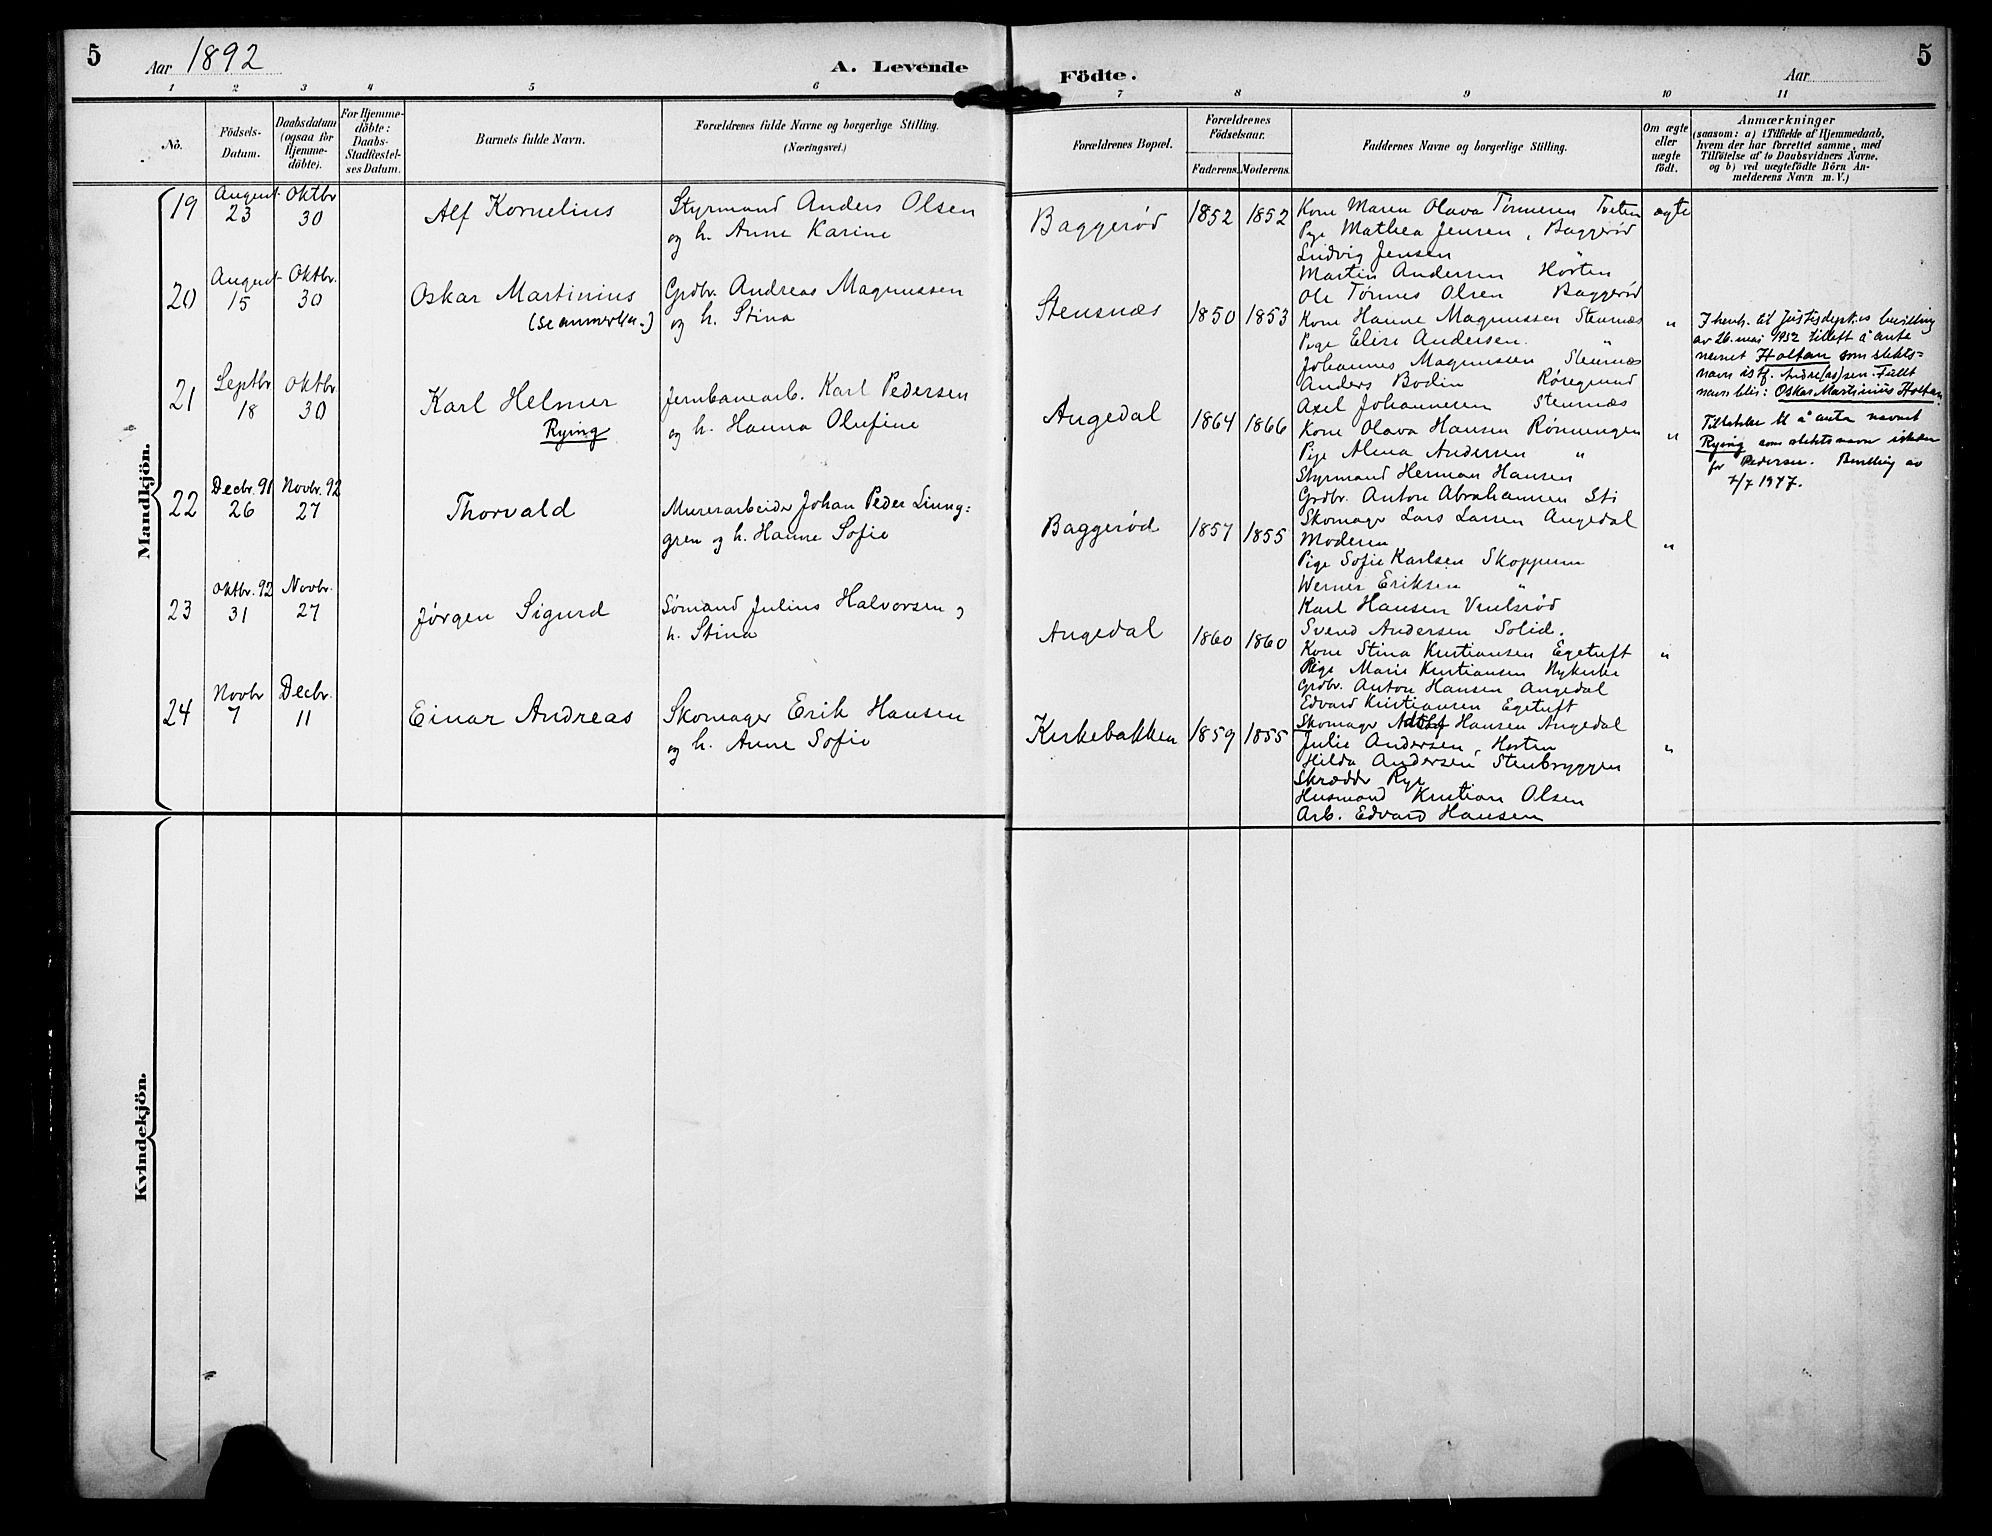 5
Aar 1892
A. Levende
Födte.
Aar
5
1 2 3 4 5 6 7 8 9 10 11
No.
Födsels-
Datum.
Daabsdatum
(ogsaa for
Hjemme-
döbte).
For Hjemme-
döbte:
Daabs-
Stadfæstel-
ses Datum.
Barnets fulde Navn.
Forældrenes fulde Navne og borgerlige Stilling.
(Næringsvei.)
Forældrenes Bopæl.
Forældrenes
Födselsaar.
Faderens.
Moderens.
Faddernes Navne og borgerlige Stilling.
Om ægte
eller
uægte
födt.
Anmærkninger
(saasom: a) i Tilfælde af Hjemmedaab,
hvem der har forrettet samme, med
Tilföielse af to Daabsvidners Navne,
og b) ved uægtefödte Börn An-
melderens Navn m. V.)
Mandkjön.
19
August
23
Oktbr
30
Alf Kornelius
Styrmand Anders Olsen
og h. Anne Karine
Baggerød
1852
1852
Kone Maren Olava Tønnesen Tveten
Pige Mathea Jensen, Baggerød
Ludvig Jensen
Martin Andersen Horten
Ole Tønnes Olsen Baggerød
ægte
20
August
15
Oktbr.
30
Oskar Martinius
(se anmerkn.)
Grdbr. Andreas Magnussen
og h. Stina
Stensnæs
1850
1853
Kone Hanne Magnussen Stensnæs
Pige Elise Andersen. "
Johannes Magnussen Stensnæs
Anders Bodin
Axel Johannesen Stensnæs
"
I henh. til Justisdept.es bevilling
av 26. mai 1952 tillatt å anta
navnet Holtan som slekts-
navn istf. Andre(as)sen. Fullt
navn blir: Oskar Martinius Holtan.
21
Septbr
18
Oktbr.
30
Karl Helmer
Rying
Jernbanearb. Karl Pedersen
og h. Hanna Olufine
Angedal
1864
1866
Kone Olava Hansen Rønningen
Pige Alma Andersen "
Styrmand Herman Hansen
Grdbr. Anton Abrahamsen Sti
Skomager Lars Larsen Angedal
"
Tillatelse til å anta navnet
Rying som slektsnavn isteden
for Pedersen. Bevilling av
7/7 1947.
22
Decbr. 91
26
Novbr. 92
27
Thorvald
Murerarbeider Johan Peder Ljung=
gren og h. Hanne Sofie
Baggerød
1857
1855
Moderen
Pige Sofie Karlsen Skoppum
Werner Eriksen "
Karl Hansen
Svend Andersen Solid.
"
23
Oktbr. 92
31
Novbr.
27
Jørgen Sigurd
Sømand Julius Halvorsen og
h. Stina
Angedal
1860
1860
Kone Stina Kristiansen Egetuft
Pige Marie Kristiansen Nykirke
Grdbr. Anton Hansen Angedal
Edvard Kristiansen Egetuft
Skomager Adolf Hansen Angedal
"
24
Novbr
7
Decbr.
11
Einar Andreas
Skomager Erik Hansen
og h. Anne Sofie
Kirkebakken
1859
1855
Julie Andersen, Horten
Hilda Andersen Stenbryggen
Skrædder Rye
Husmand Kristian Olsen
Arb. Edvard Hansen
"
Kvindekjön.